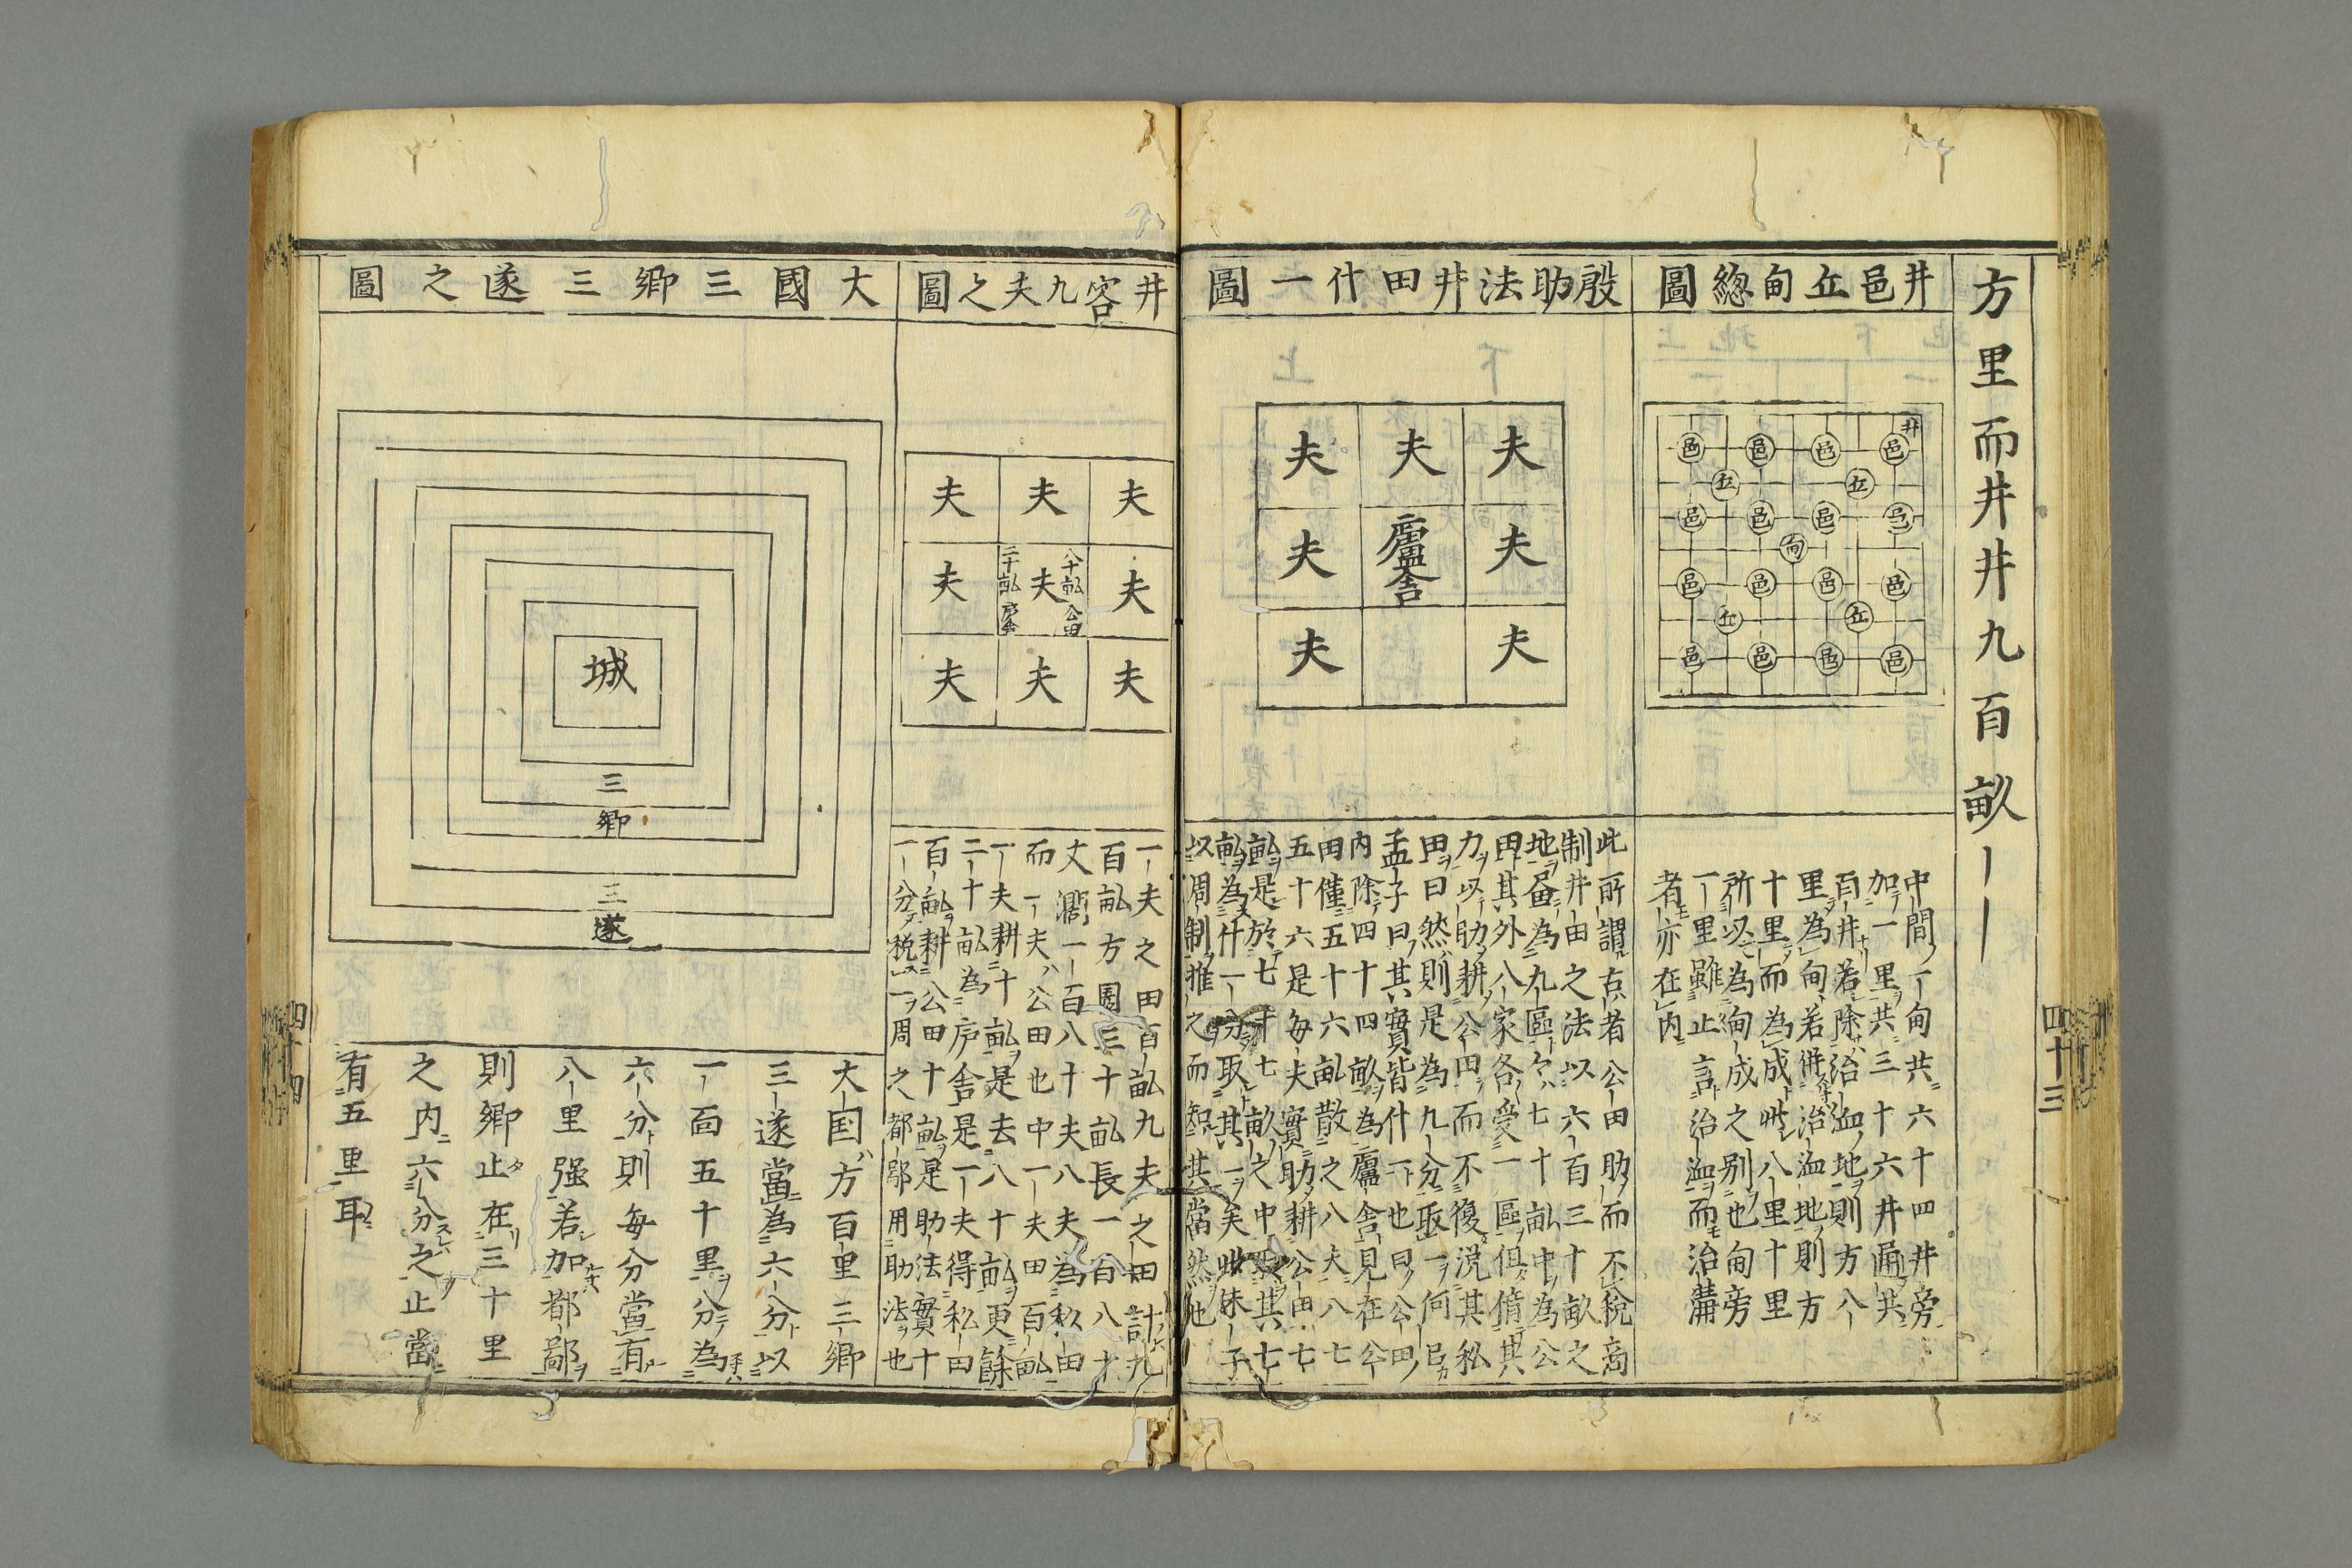 方里而井井九百畝
井邑丘甸總圖
井
邑 邑 邑 邑
丘 丘
邑 邑 邑 邑
甸
邑 邑 邑 邑
丘 丘
邑 邑 邑 邑
中間一甸共六十四井旁
加一里共三十六井通共
百井若除治洫地則方八
里為甸若併治洫地則方
十里而為成此八里十里
所以為甸成之別也甸旁
一里雖止言治洫而治溝
者亦在内
殷助法井田什一圖
夫 夫 夫
夫 廬舍 夫
夫 夫
此所謂古者公田助而不稅商
制井田之法以六百三十畝之
地畫為九區々七十畝中為公
田其外八家各受一區但借其
力以助耕公田而不復稅其私
田曰然則是為九分取一何
孟子曰其實皆什一也曰公田
内除四十四畝為廬舍見在公
田僅五十六畝散之八夫八七
五十六是每夫實助耕公田七
畝是於七十七畝之中取其七
畝為什一分取其一矣此朱子
以周制推之而知其當然也
四十三
井客九夫之圖
夫 夫 夫
夫 八十畝公田 夫 二十畝廬舍 夫
夫 夫 夫
一夫之田百畝九夫之田計九
百畝方圍三十畝長一百八十
丈濶一百八十夫八夫為私田
而一夫公田也中一夫田百畝
一夫耕十畝是去八十畝更餘
二十畝為庐舍是一夫得私田
百畝耕公田十畝是助法實十
一分稅一周之都鄙用助法也
大國三鄉三遂之圖
城
三
鄉
三
遂
大国方百里三鄉
三遂當為六分以
一面五十里分為
六分則每分當有
八里强若加都鄙
則鄉止在三十里
之内六分之止當
有五里耳
四十四